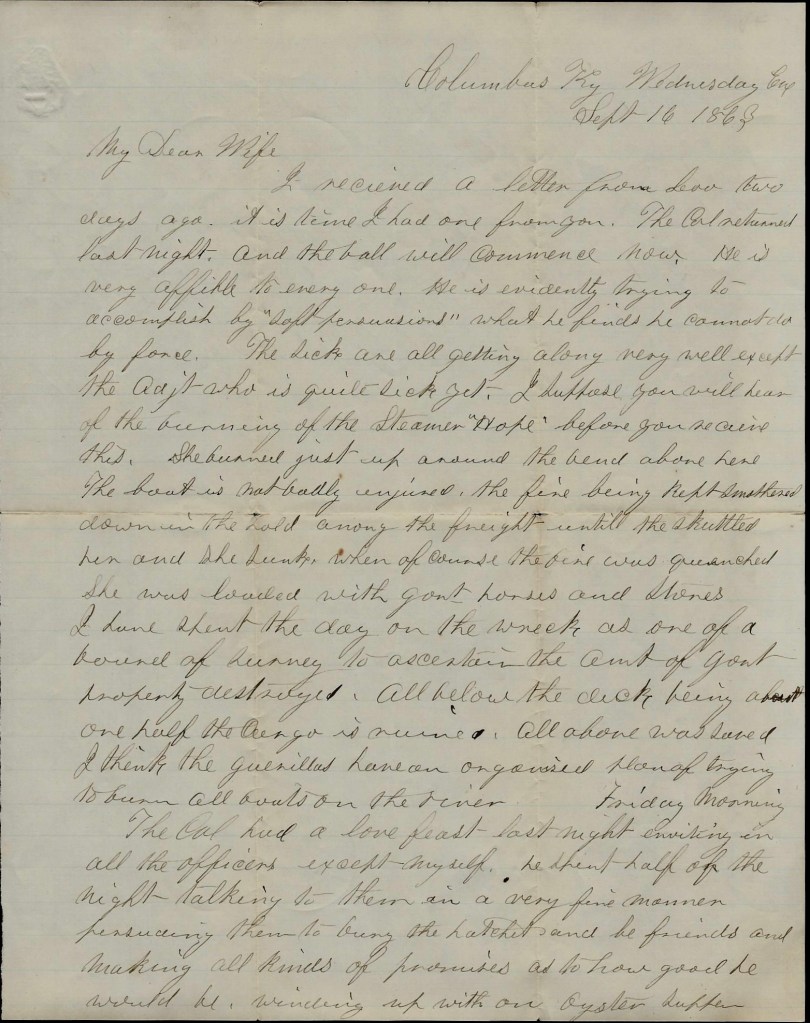 Columbus Ky Wednesday Eve
Sept 16 1863
My Dear Wife
I recieved a letter from Lovo two
days ago. it is time I had one from you. The Col returned
last night. and the ball will commence now. He is
very affible to every one. He is evidently trying to
accomplish by "soft persuasions" what he finds he cannot do
by force. The sick are all getting along very well except
the Adjt who is quite sick yet. I suppose you will hear
of the burning of the Steamer "Hope" before you recieve
this. She burned just up around the bend above here
The boat is not badly injured. the fire being kept smothered
down in the hold among the freight untill the skuttled
her and she sunk, when of course the fire was quenched
She was loaded with govt horses and stores
I have spent the day on the wreck as one of a
board of survey to ascertain the amt of govt
property destroyed. All below the deck being about
one half the Cargo is ruined. All above was saved
I think the guerillas have an organised plan of trying
to burn all boats on the river Friday Morning
The Col had a love feast last night inviting in
all the officers except myself. he spent half of the
night talking to them in a very fine manner
persuding them to bury the hatchet and be friends and
making all kinds of promises as to how good he
would be. winding up with an Oyster supper